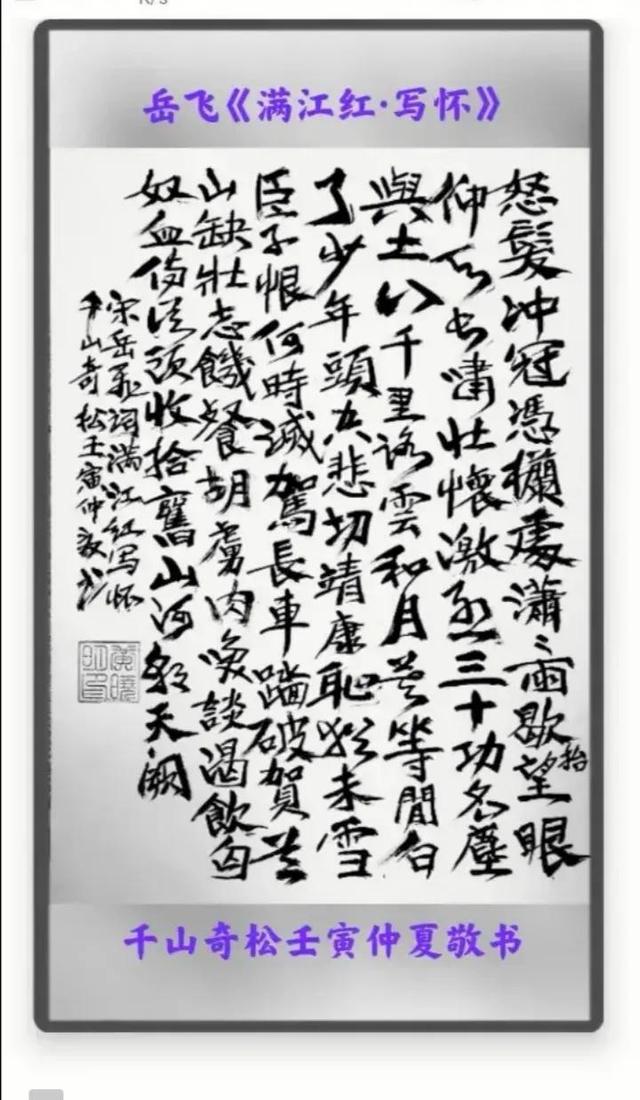 岳飞《满江红·写怀》
怒髮冲冠憑欄處瀟〻雨歇抬望眼
仰天长嘯壯懷激烈三十功名塵
與土八千里路雲和月莫等閒白
了少年頭空悲切靖康恥猶未雪
臣子恨何時滅駕長車踏破賀兰
山缺壯志饑餐胡虜肉咲談渴飲匈
奴血待從頭收拾舊山河朝天闕
宋岳飛词满江红写怀
千山奇松壬寅仲夏书
千山奇松壬寅仲夏敬书